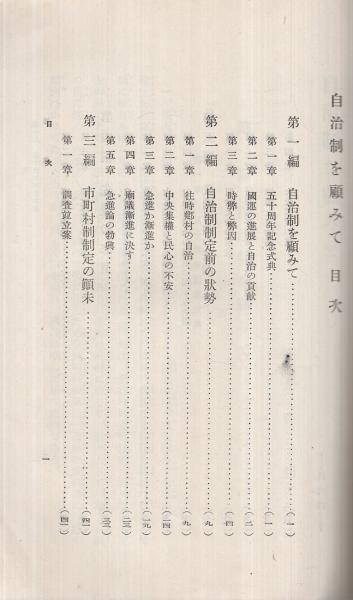 自治制を顧みて 目次
第一編 自治制を顧みて……(一)
第一章 五十周年記念式典……(一)
第二章 國運の進展と自治の貢献……(二)
第三章 時弊と弊因……(四)
第二編 自治制制定前の狀勢……(九)
第一章 往時鄕村の自治……(九)
第二章 中央集權と民心の不安……(一四)
第三章 急進か漸進か……(一九)
第四章 廟議漸進に決す……
第五章 急進論の勃興……
第三編 市町村制制定の顚末……(四一)
第一章 調査竝立案……(四一)
目次
一